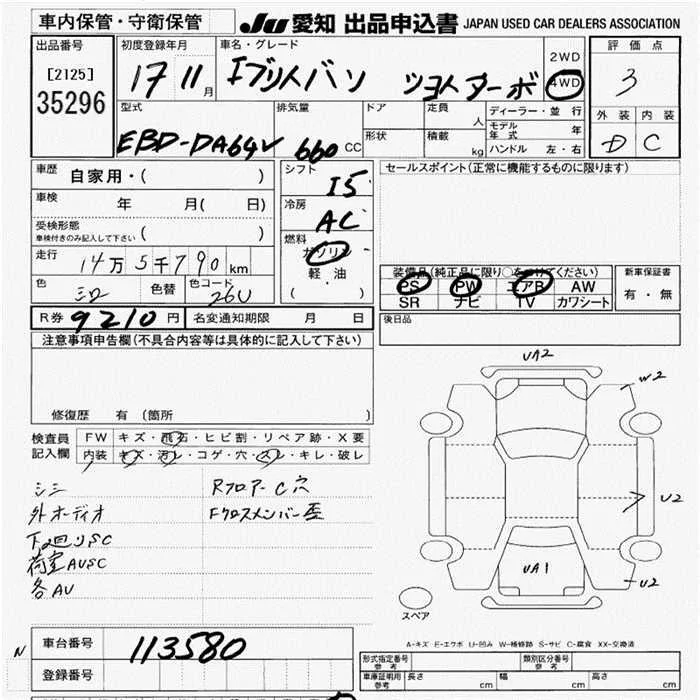 車内保管・守衛保管
JU 愛知 出品申込書 JAPAN USED CAR DEALERS ASSOCIATION
出品番号
[2125]
35296
初度登録年月
17 11月
車名・グレード
2WD
4WD
評価点
3
外装 内装
D C
型式
EBD-DA64V
排気量
660 CC
ドア
形状
定員
人
積載
kg
ディーラー・並行
モデル年式 年
ハンドル 左・右
車歴 自家用・( )
車検 年 月( 日)
受検形態
車検付きのみ記入して下さい ( )
走行 14万5千790km
色 色替 色コード 26U
シフト I5
冷房 AC
燃料
ガソリン
軽・油
(・)
セールスポイント(正常に機能するものに限ります)
装備品(純正品に限り○をつけてください)
PS PW エアB AW
SR ナビ TV カワシート
新車保証書
有・無
R券 9210円 名変通知期限 月 日
後日品
注意事項申告欄(不具合内容等は具体的に記入して下さい)
修復歴 有(箇所 )
検査員記入欄
FW キズ・飛石・ヒビ割・リペア跡・X要
内装 キズ・汚レ・コゲ・穴・スレ・キレ・破レ
シミ
外オーディオ
下廻りSC
荷室AUSC
各AU
Rフロアー C穴
Fクロスメンバー歪
UA2
W2
U2
UA1
U2
スペア
A-キズ E-エクボ U-凹み W-補修跡 S-サビ C-腐食 XX-交換済
N
車台番号 113580
登録番号
形式指定番号 参考
類別区分番号 参考
車庫証明用 参考 長さ cm 幅 cm 高さ cm